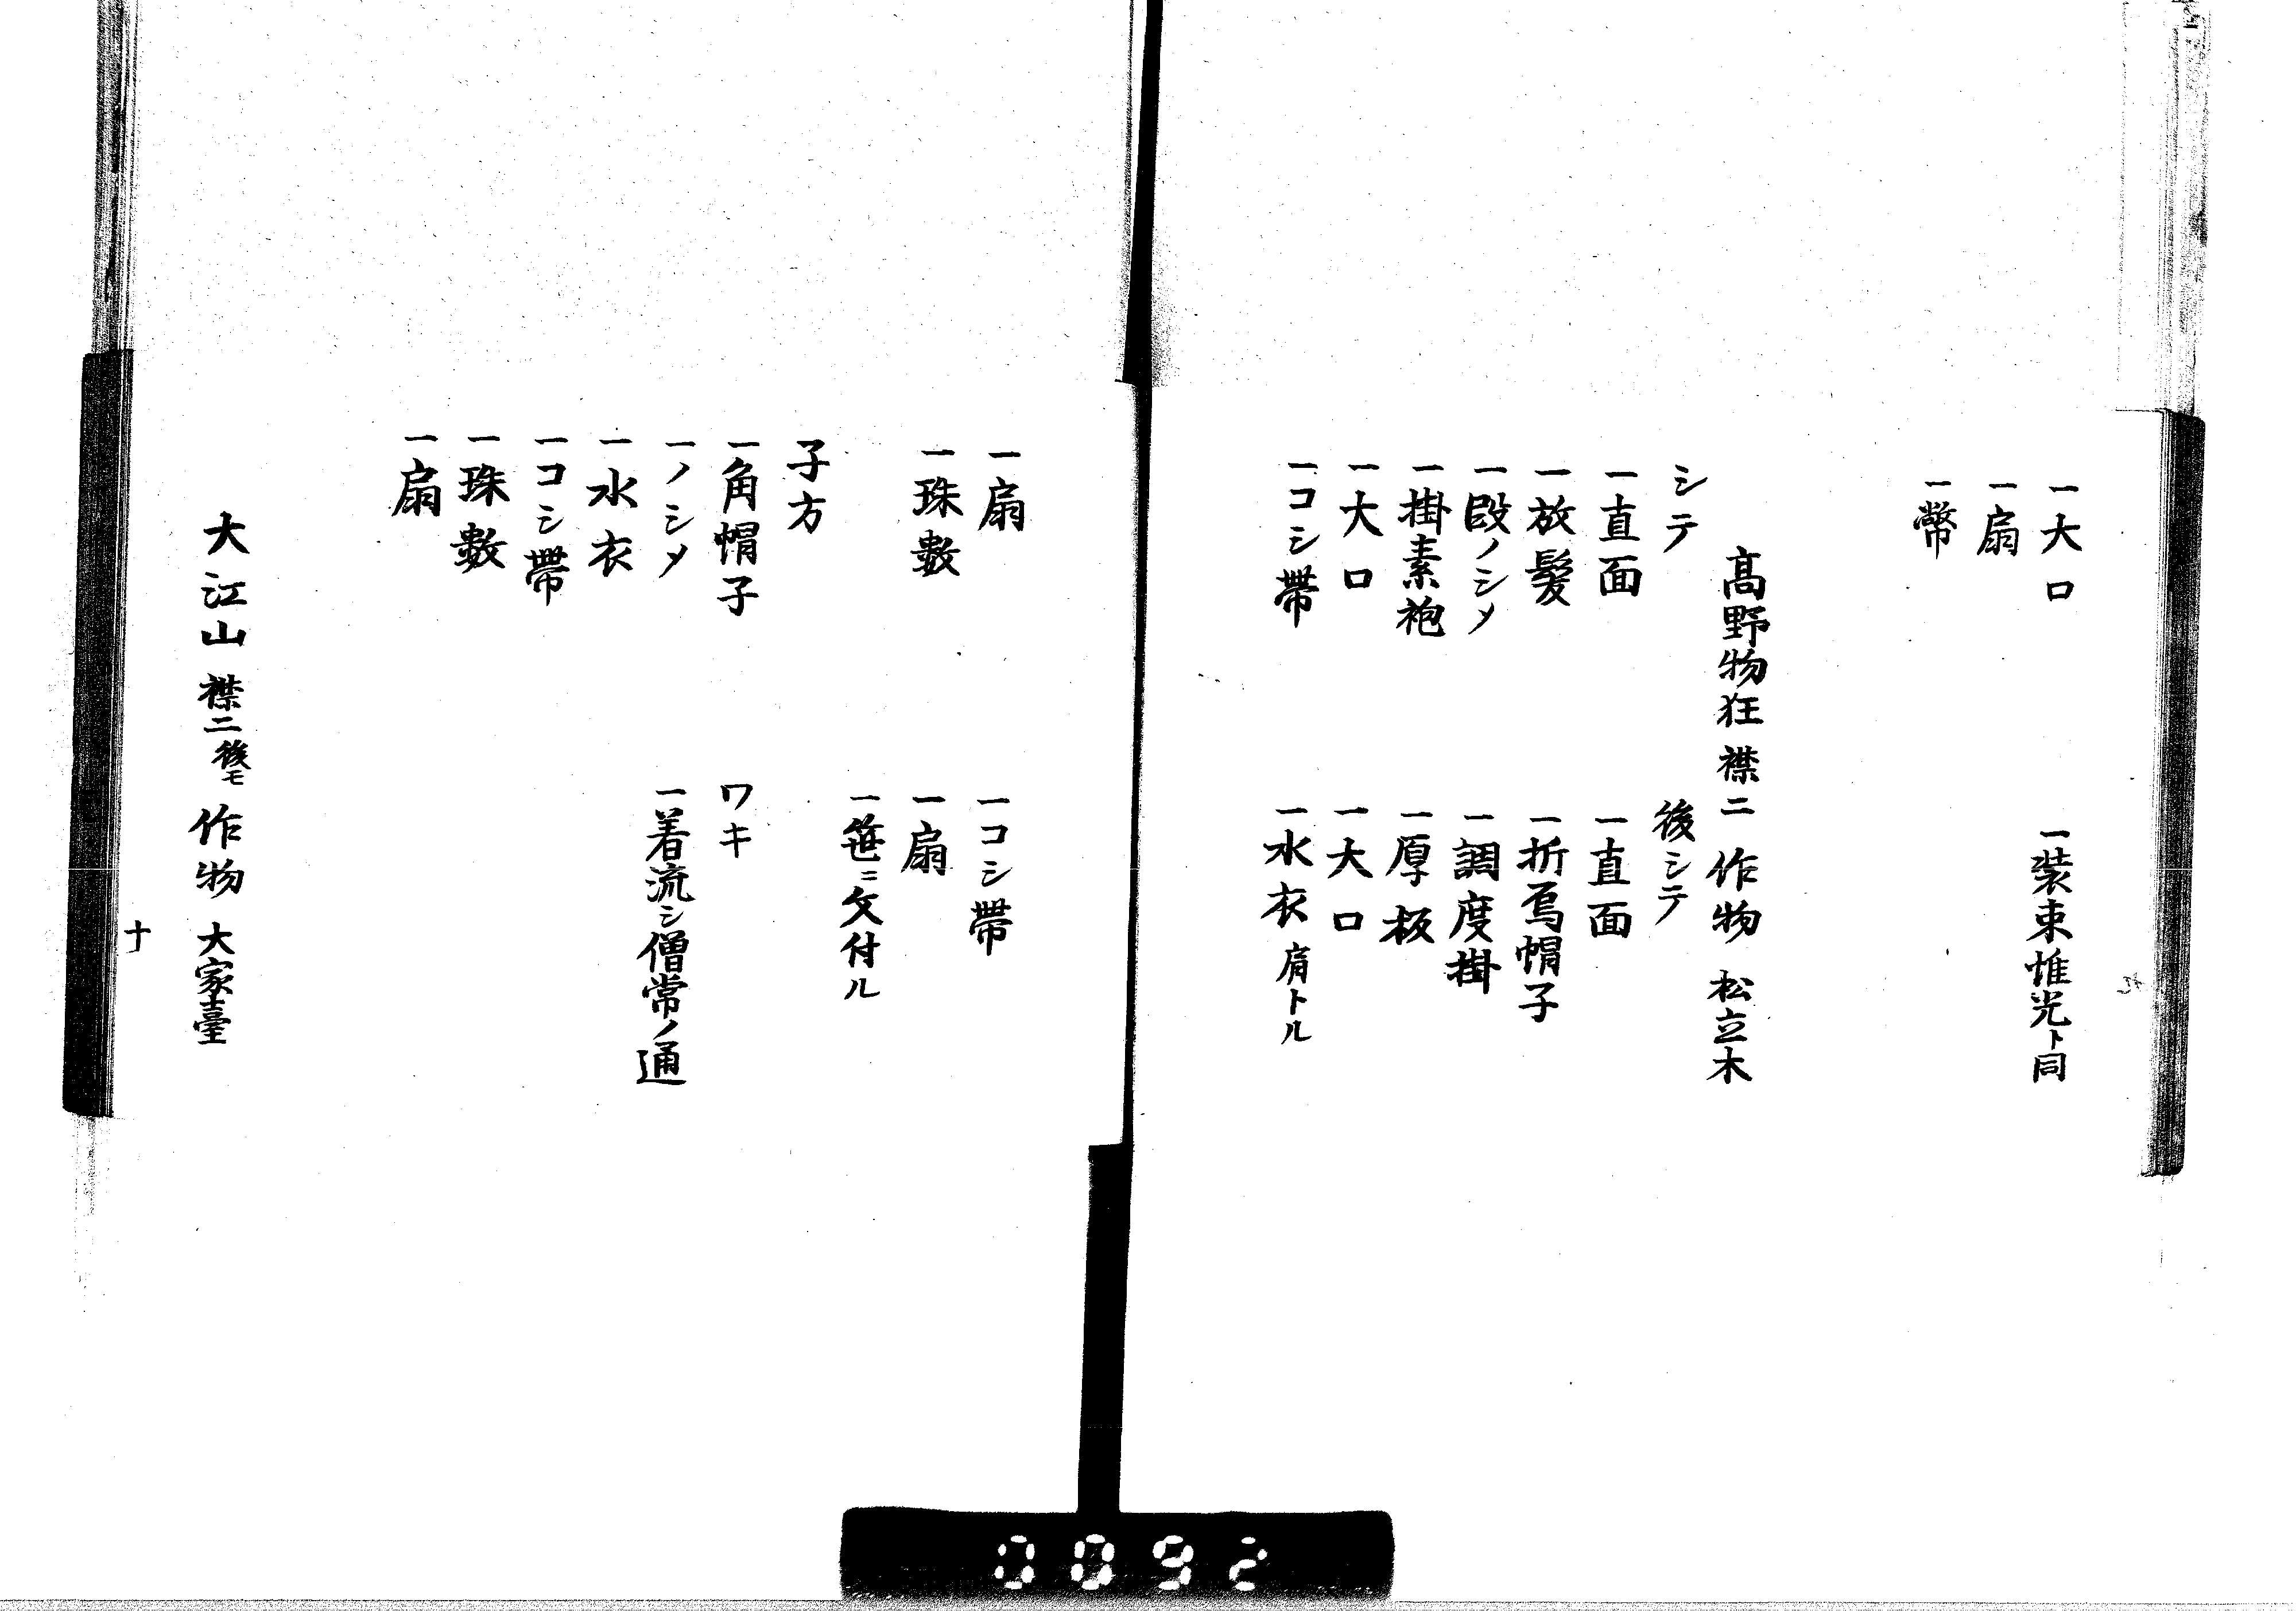 一大口
一装束惟光ト同
一扇
一幣
高野物狂 襟二 作物 松立木
シテ
後シテ
一直面
一直面
一放髪
一折烏帽子
一段ノシメ
一調度掛
一掛素袍
一厚板
一大口
一大口
一コシ帯
一水衣 肩トル
一扇
一コシ帯
一珠數
一扇
一笹ニ文付ル
子方
一角帽子
ワキ
一ノシメ
一着流シ僧常ノ通
一水衣
一コシ帯
一珠數
一扇
大江山 襟二 後モ 作物 大家臺
十
0092